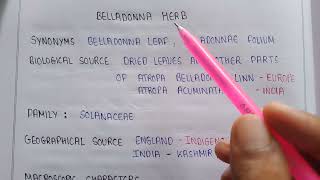 BELLADONNA HERB
SYNONYMS BELLADONNA LEAF, ADONNAE FOLIUM
BIOLOGICAL SOURCE DRIED LEAVES OTHER PARTS
OF ATROPA BELLADO LINN - EUROPE
ATROPA ACUMINATA - INDIA
FAMILY : SOLANACEAE
GEOGRAPHICAL SOURCE ENGLAND - INDIGEN
INDIA - KASHMIR
MACROSCOPIC CHARACTERS